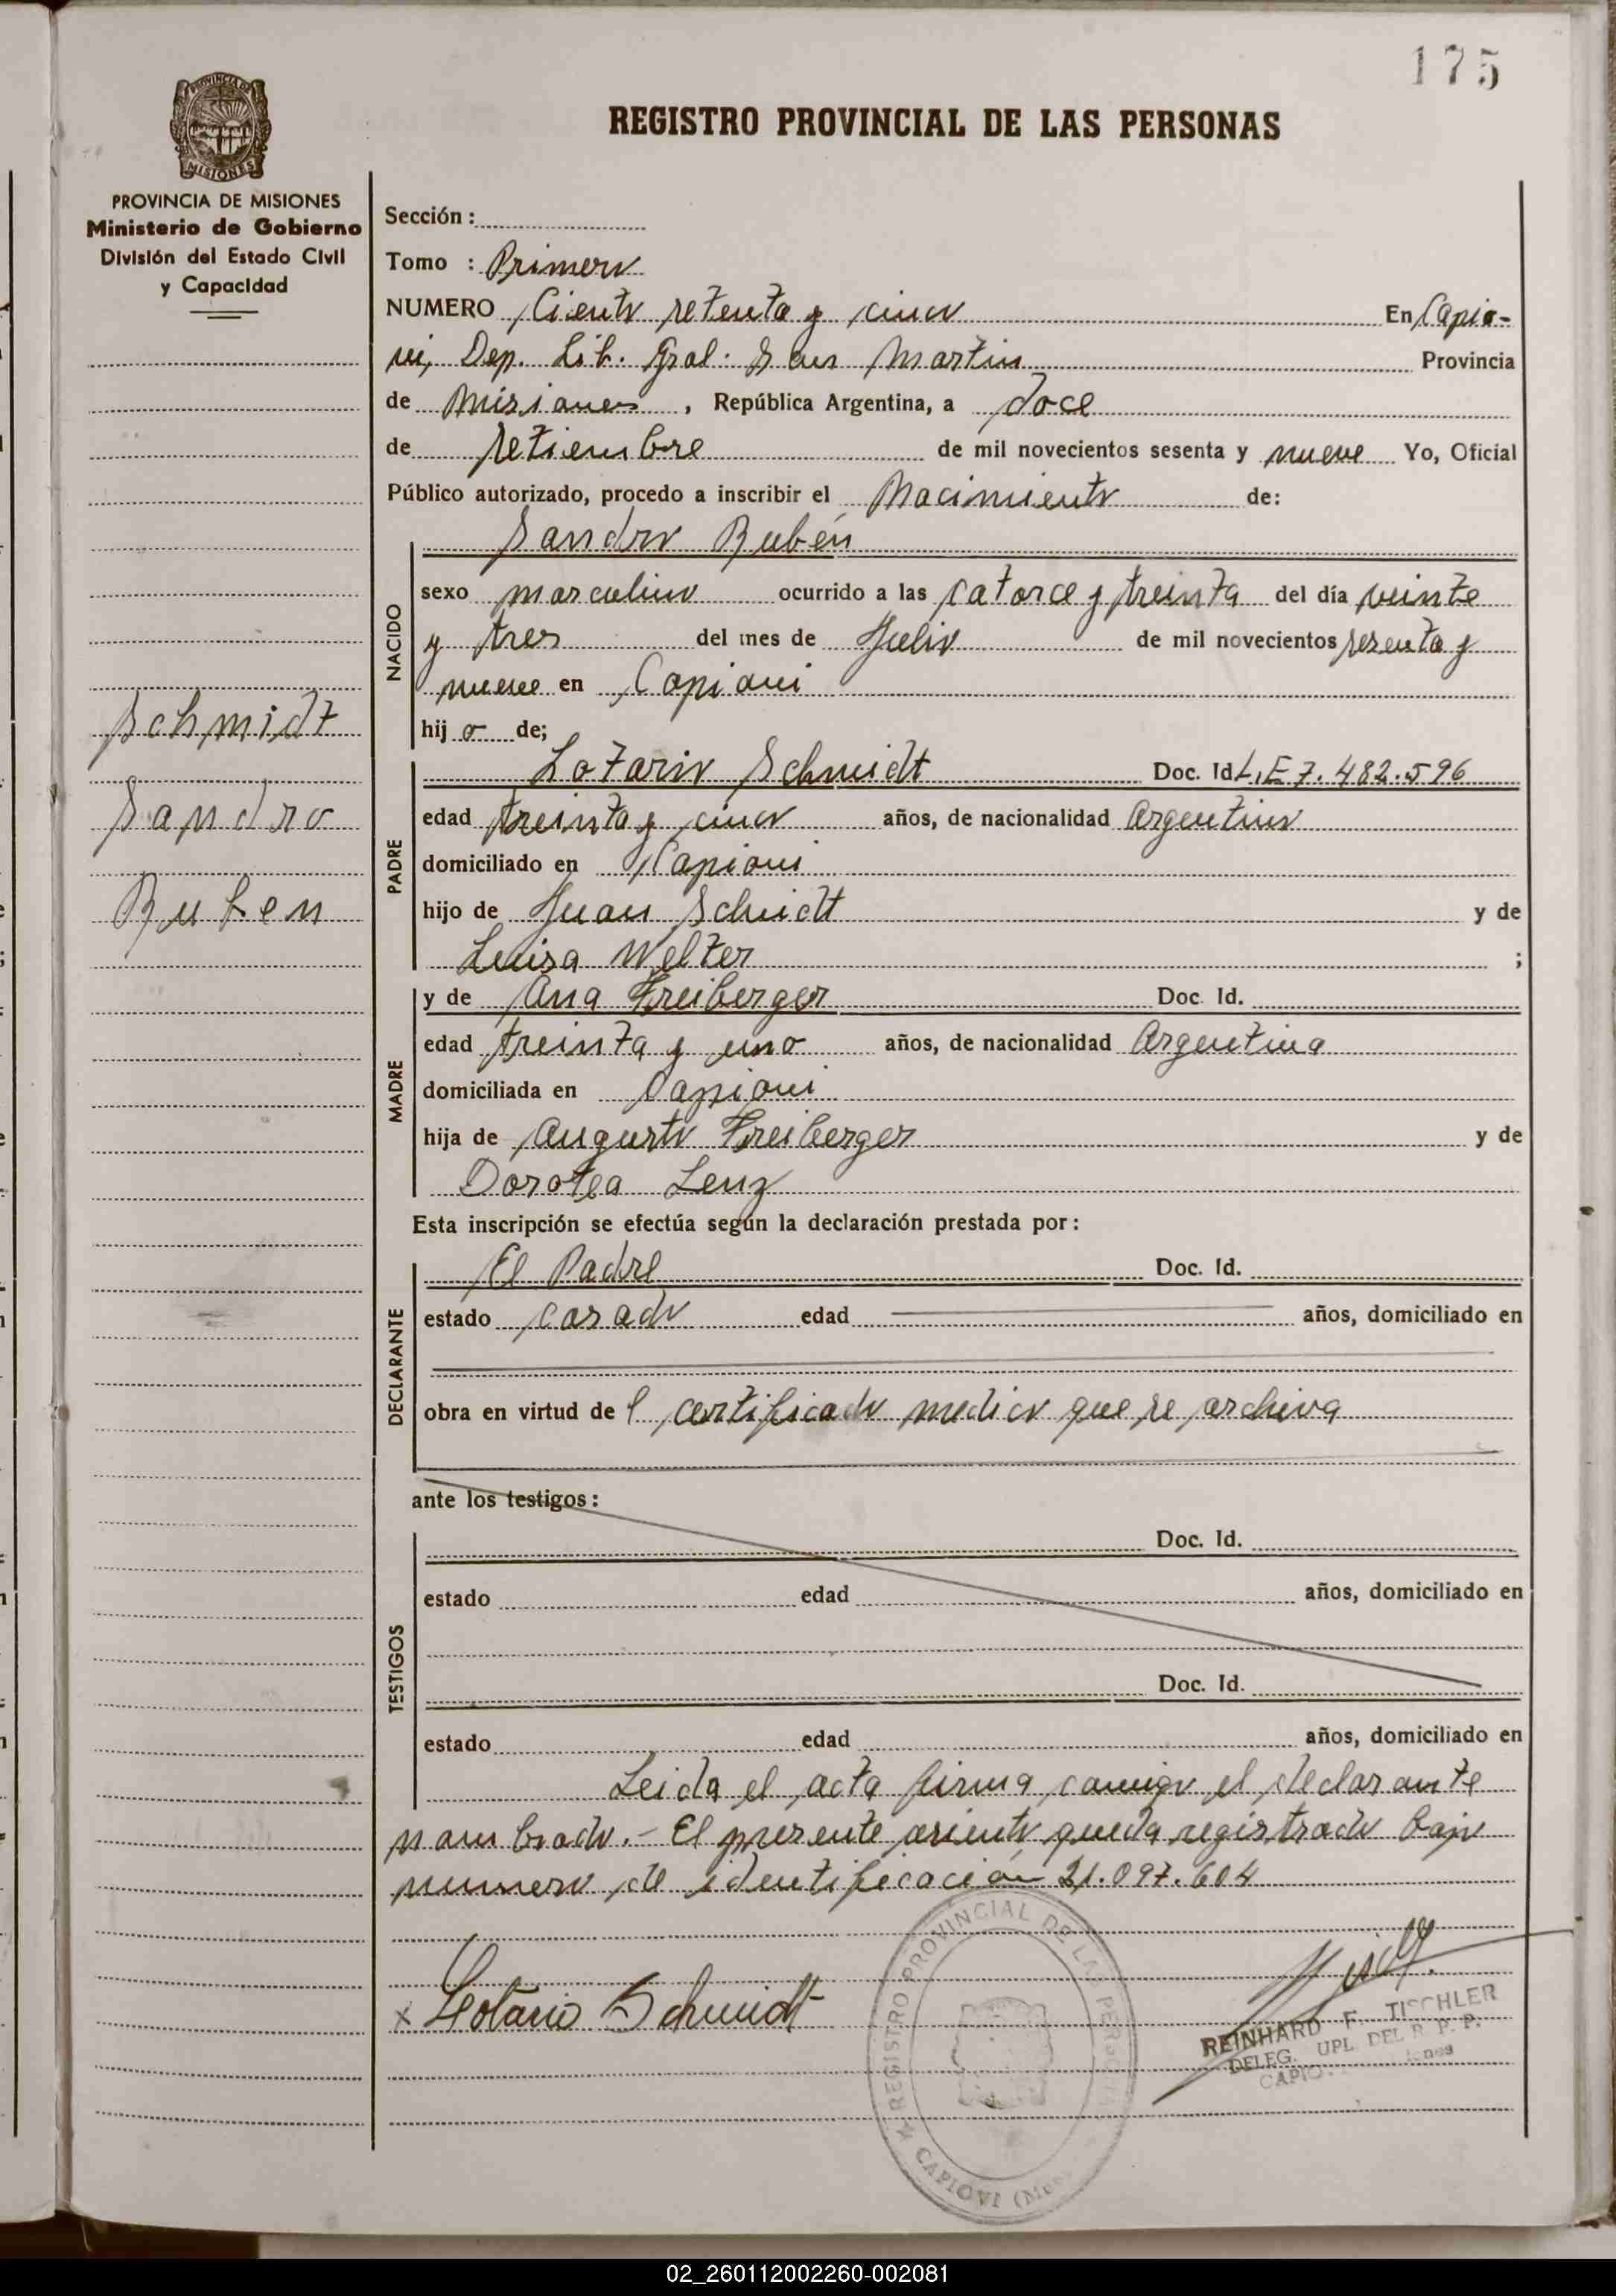 175
REGISTRO PROVINCIAL DE LAS PERSONAS
PROVINCIA DE MISIONES
Ministerio de Gobierno
División del Estado Civil
y Capacidad
Schmidt
Sandro
Ruben
Sección :
Tomo : Primero
NUMERO Ciento setenta y cinco En Capio-
vi, Dep. Lib. Gral. San Martin Provincia
de Misiones , República Argentina, a doce
de setiembre de mil novecientos sesenta y nueve Yo, Oficial
Público autorizado, procedo a inscribir el Nacimiento de:
Sandro Rubén
NACIDO
sexo masculino ocurrido a las catorce y treinta del día veinte
y tres del mes de Julio de mil novecientos sesenta y
nueve en Capiovi
hij o de;
PADRE
Lotario Schmidt Doc. Id L.E 7.482.596
edad treinta y cinco años, de nacionalidad Argentino
domiciliado en Capiovi
hijo de Juan Schmidt y de
Luisa Welter ;
MADRE
y de Ana Freiberger Doc. Id.
edad treinta y uno años, de nacionalidad Argentina
domiciliada en Capiovi
hija de Augusto Freiberger y de
Dorotea Lenz
Esta inscripción se efectúa según la declaración prestada por :
DECLARANTE
El Padre Doc. Id.
estado casado edad años, domiciliado en
obra en virtud de l certificado medico que se archiva
ante los testigos :
TESTIGOS
Doc. Id.
estado edad años, domiciliado en
Doc. Id.
estado edad años, domiciliado en
Leida el acta firma conmigo el declarante
nombrado.- El presente asiento queda registrado bajo
numero de identificación 21.097.604
x Lotario Schmidt
REGISTRO PROVINCIAL DE LAS PERSONAS
CAPIOVI
REINHARD F. TISCHLER
DELEG. UPL DEL R. P. P.
02_260112002260-002081